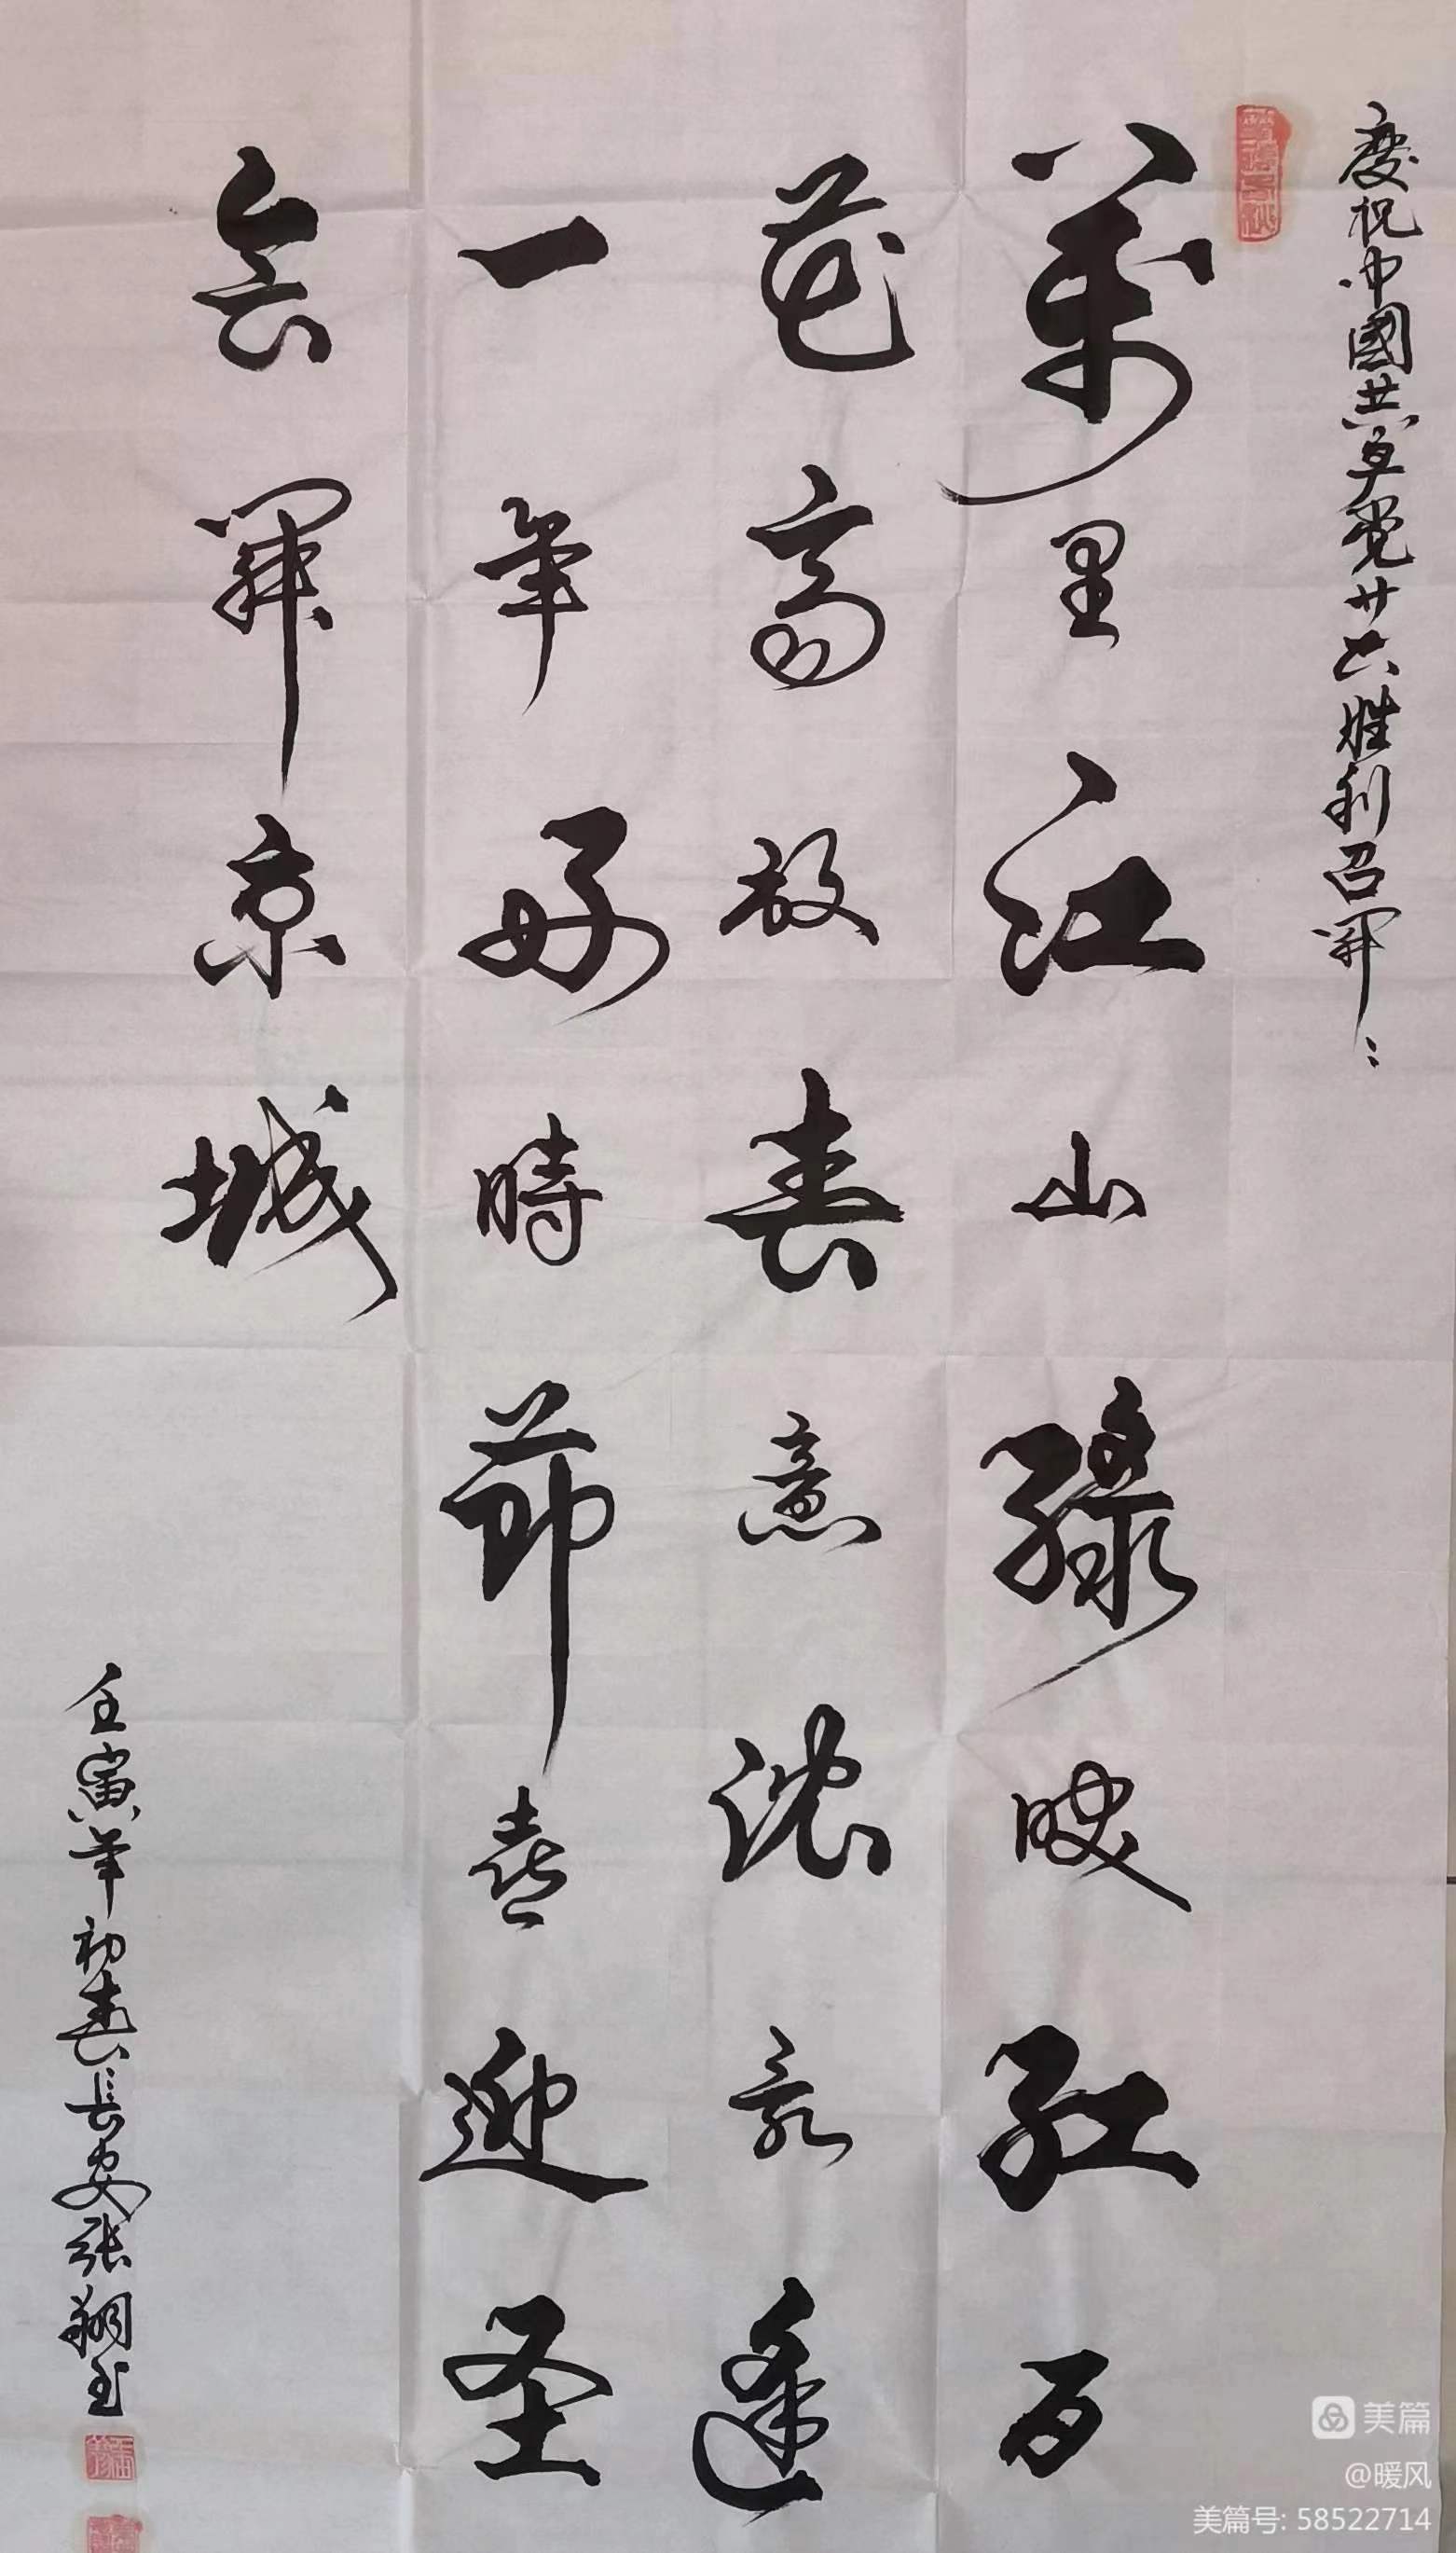 慶祝中國共産党廿大胜利召開:
萬里江山綠映紅百
花齊放春意濃欲逢
一年好時節喜迎圣
會開京城
壬寅年初春長安張翔玉
美篇
@暖风
美篇号: 58522714